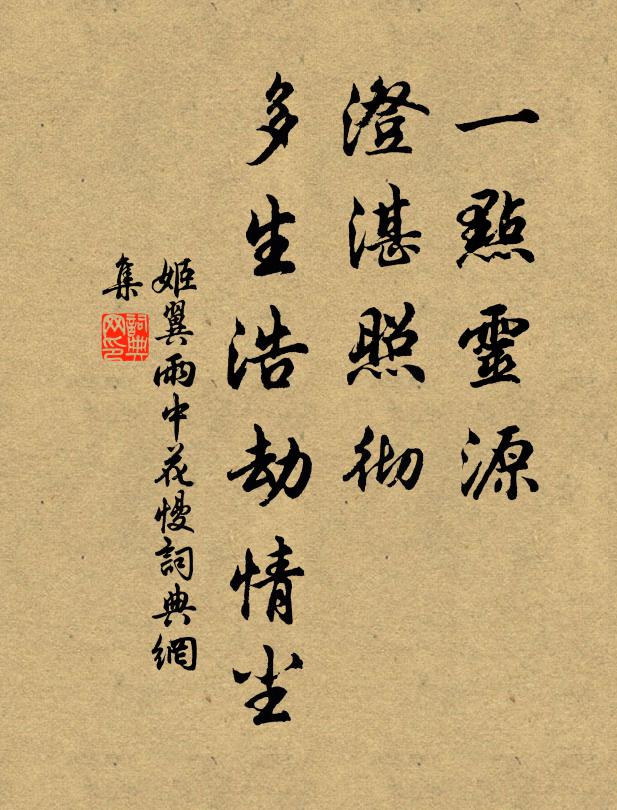 一點靈源
澄湛照彻
多生浩劫情尘
姬翼雨中花慢詞典網
集
詞典网印